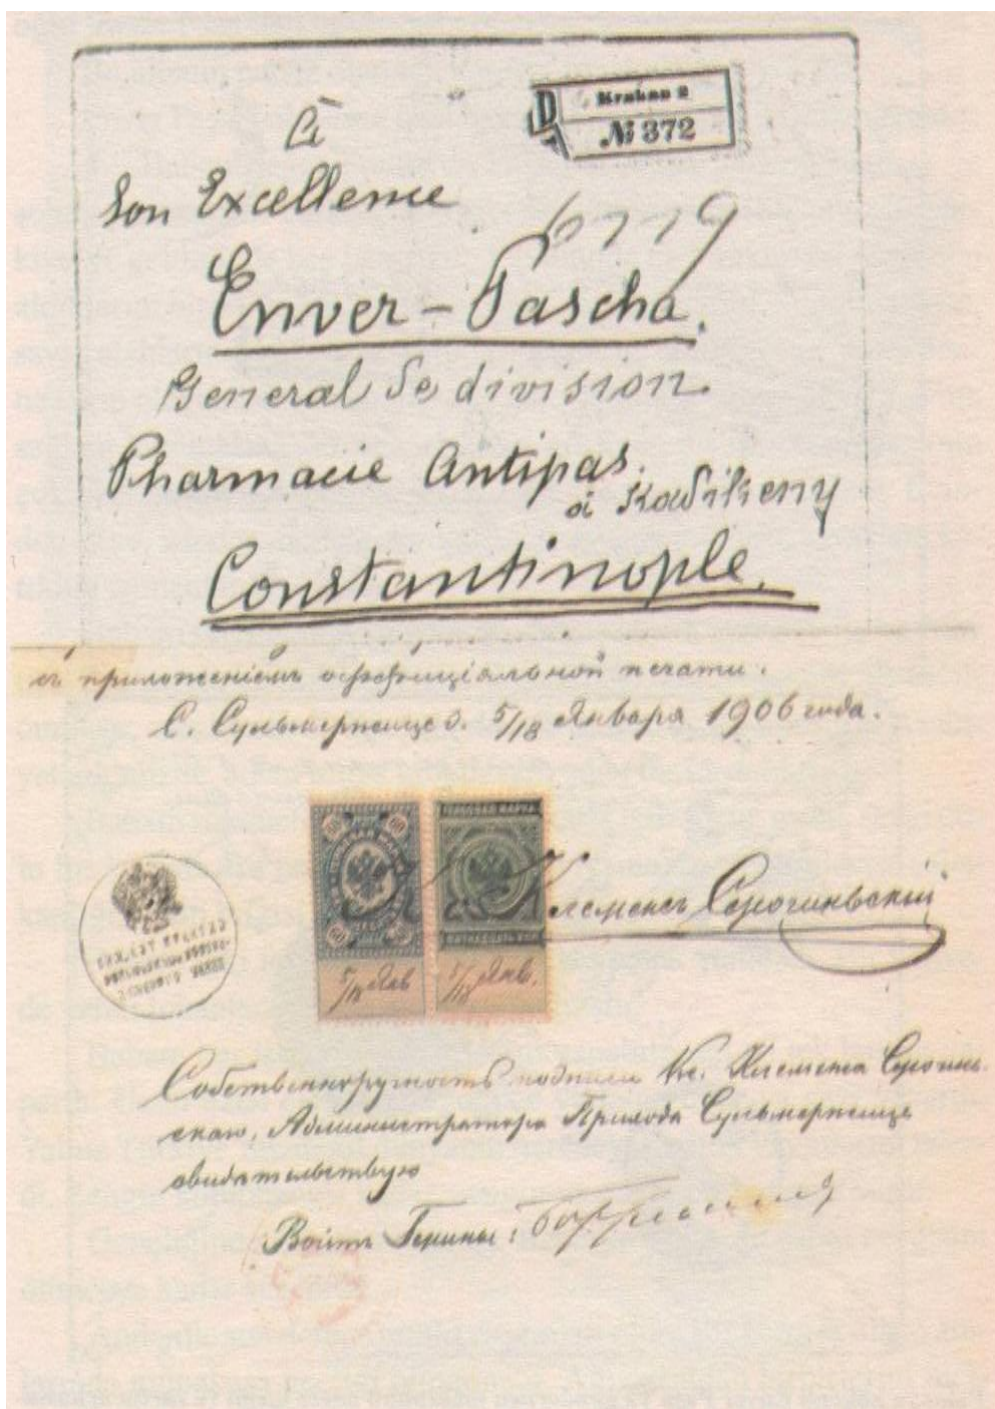 à
D Krakau 2
№ 372
Son Excellence
6119
Enver – Pascha.
General de division
Pharmacie Antipas.
à Kadikeny
Constantinople.
съ приложеніемъ оффиціальной печати.
С. Сульмержице д. 5/18 Января 1906 года.
60 60
ГЕРБОВАЯ МАРКА
60 60
ПЯТНАДЦАТЬ КОП.
Кс. Клеменсъ Серочиньскій
5/18 Янв
5/18 Янв.
Собственноручность подписи Кс. Клеменса Серочинь-
скаго, Администратора Прихода Сульмержице
свидѣтельствую
Войтъ Гмины: